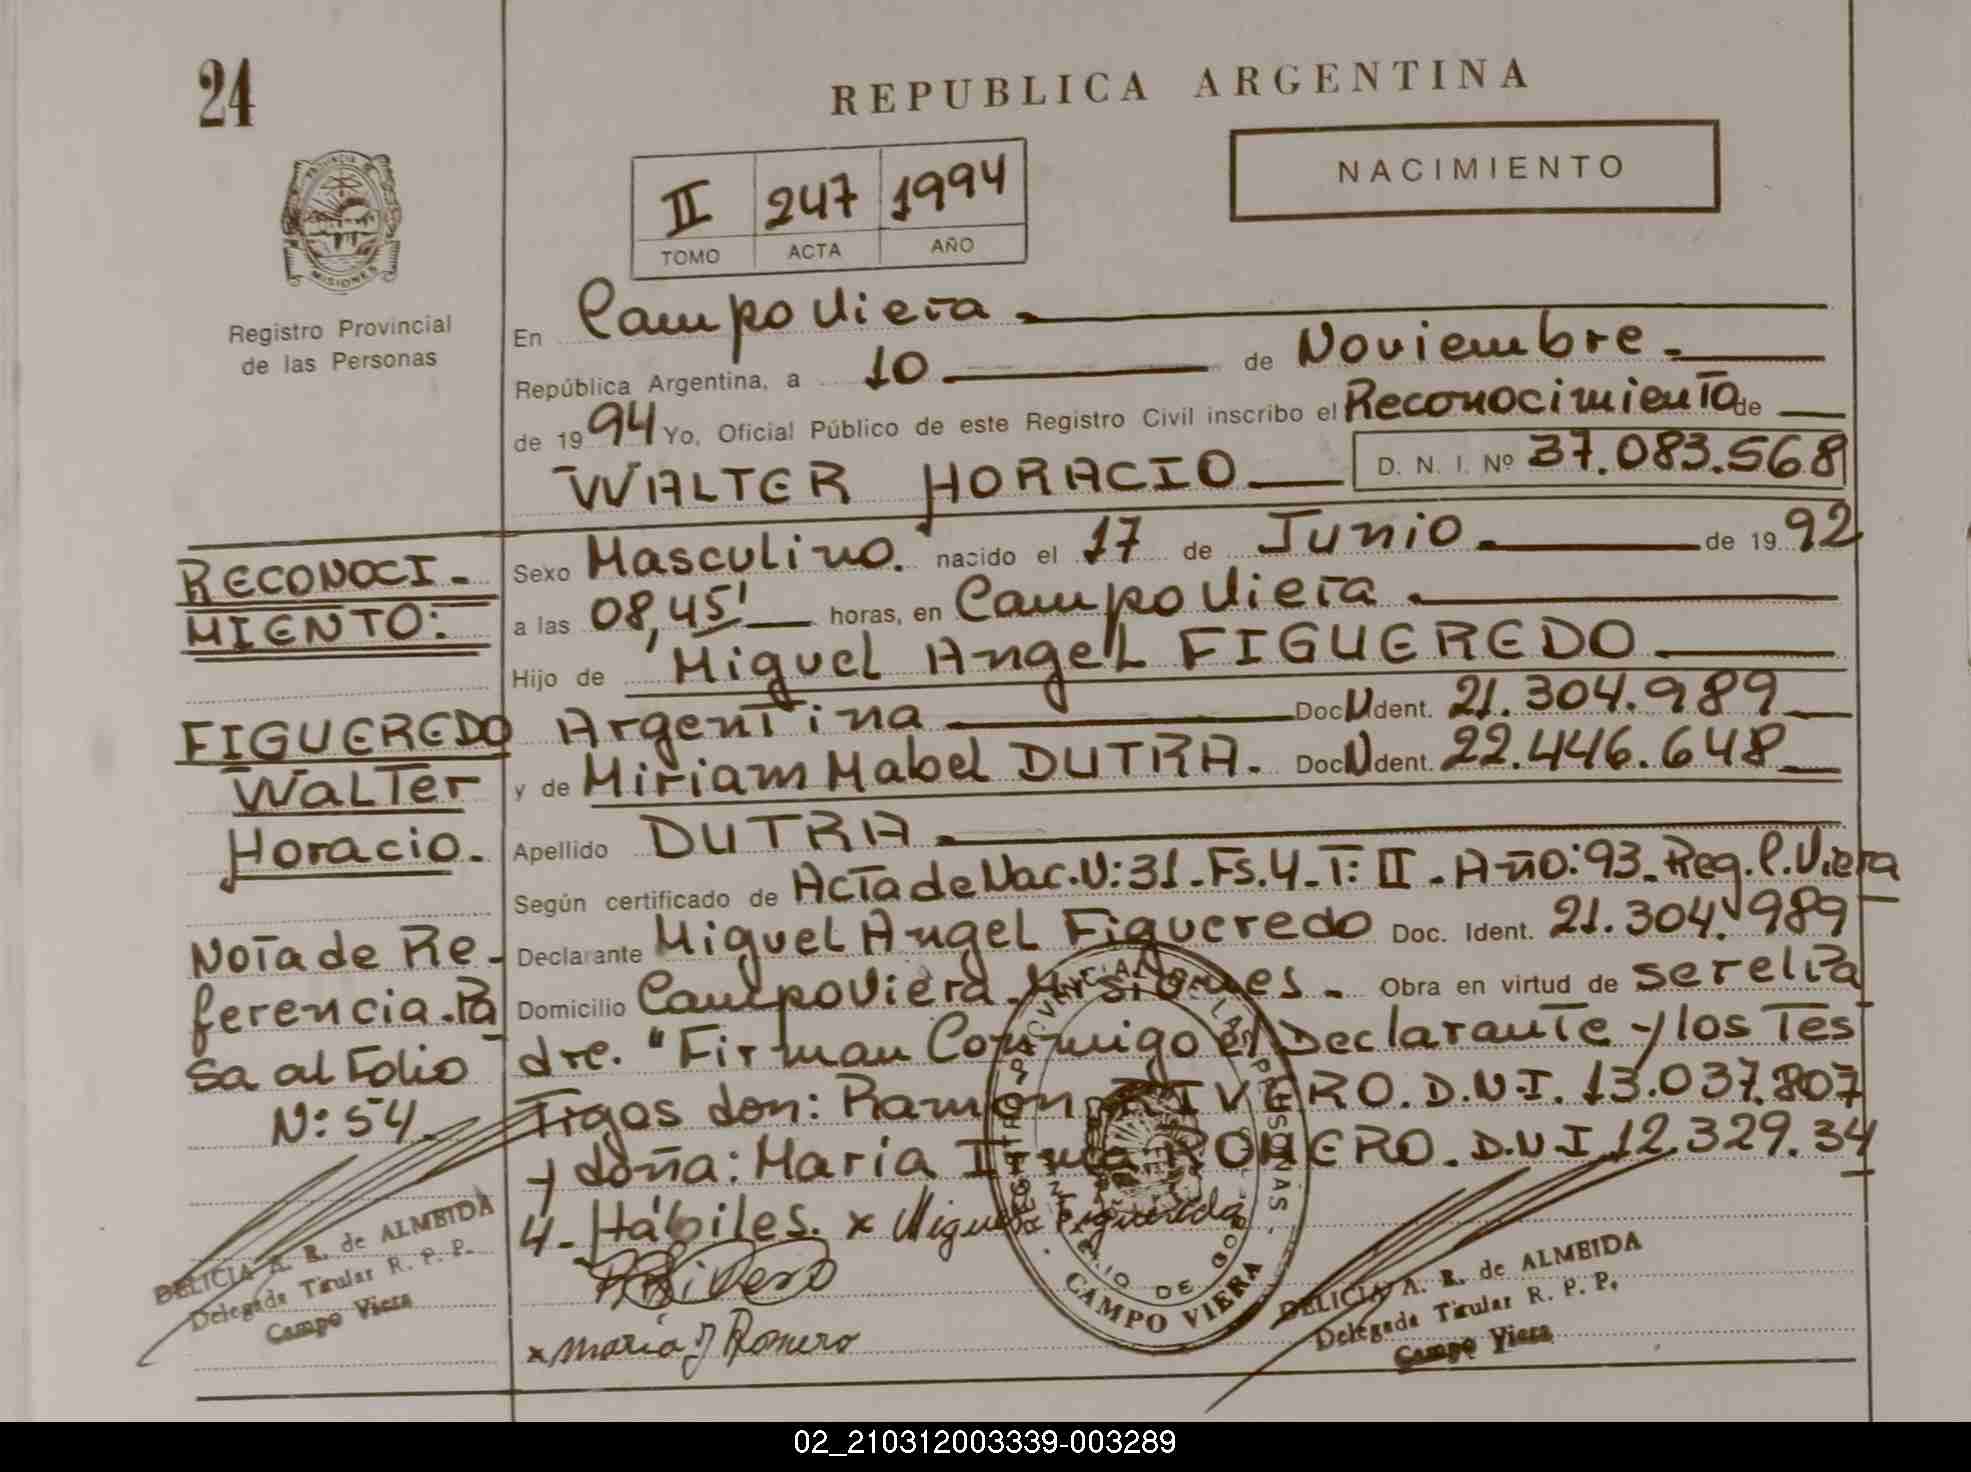 24
REPUBLICA ARGENTINA
NACIMIENTO
II 247 1994
TOMO ACTA AÑO
PROVINCIA DE
MISIONES
Registro Provincial
de las Personas
En Campo Viera.
República Argentina, a 10 de Noviembre.
de 19 94 Yo, Oficial Público de este Registro Civil inscribo el Reconocimiento de
WALTER HORACIO D. N. I. Nº 37.083.568
Sexo Masculino. nacido el 17 de Junio. de 19 92
a las 08,45' horas, en Campo Viera.
Hijo de Miguel Angel FIGUEREDO
Argentina Doc N Ident. 21.304.989
y de Miriam Mabel DUTRA. Doc N Ident. 22.446.648
Apellido DUTRA.
Según certificado de Acta de Nac. N: 31-Fs.4-T: II-Año: 93. Reg. C. Viera
Declarante Miguel Angel Figueredo Doc. Ident. 21.304.989
Domicilio Campo Viera. Misiones. Obra en virtud de ser el Pa
dre. "Firman Conmigo el Declarante y los Tes
Tigos don: Ramon RIVERO. D.N.I. 13.037.807
y doña: Maria Irma ROMERO. D.N.I. 12.329.34
4- Hábiles. x Miguel Figueredo
R Rivero
x maria I Romero
RECONOCI-
MIENTO:
FIGUEREDO
Walter
Horacio.
Nota de Re-
ferencia. Pa
sa al Folio
N: 54.
DELICIA A. R. de ALMEIDA
Delegada Titular R. P. P.
Campo Viera
CAMPO VIERA
DELICIA A. R. de ALMEIDA
Delegada Titular R. P. P.
Campo Viera
02_210312003339-003289